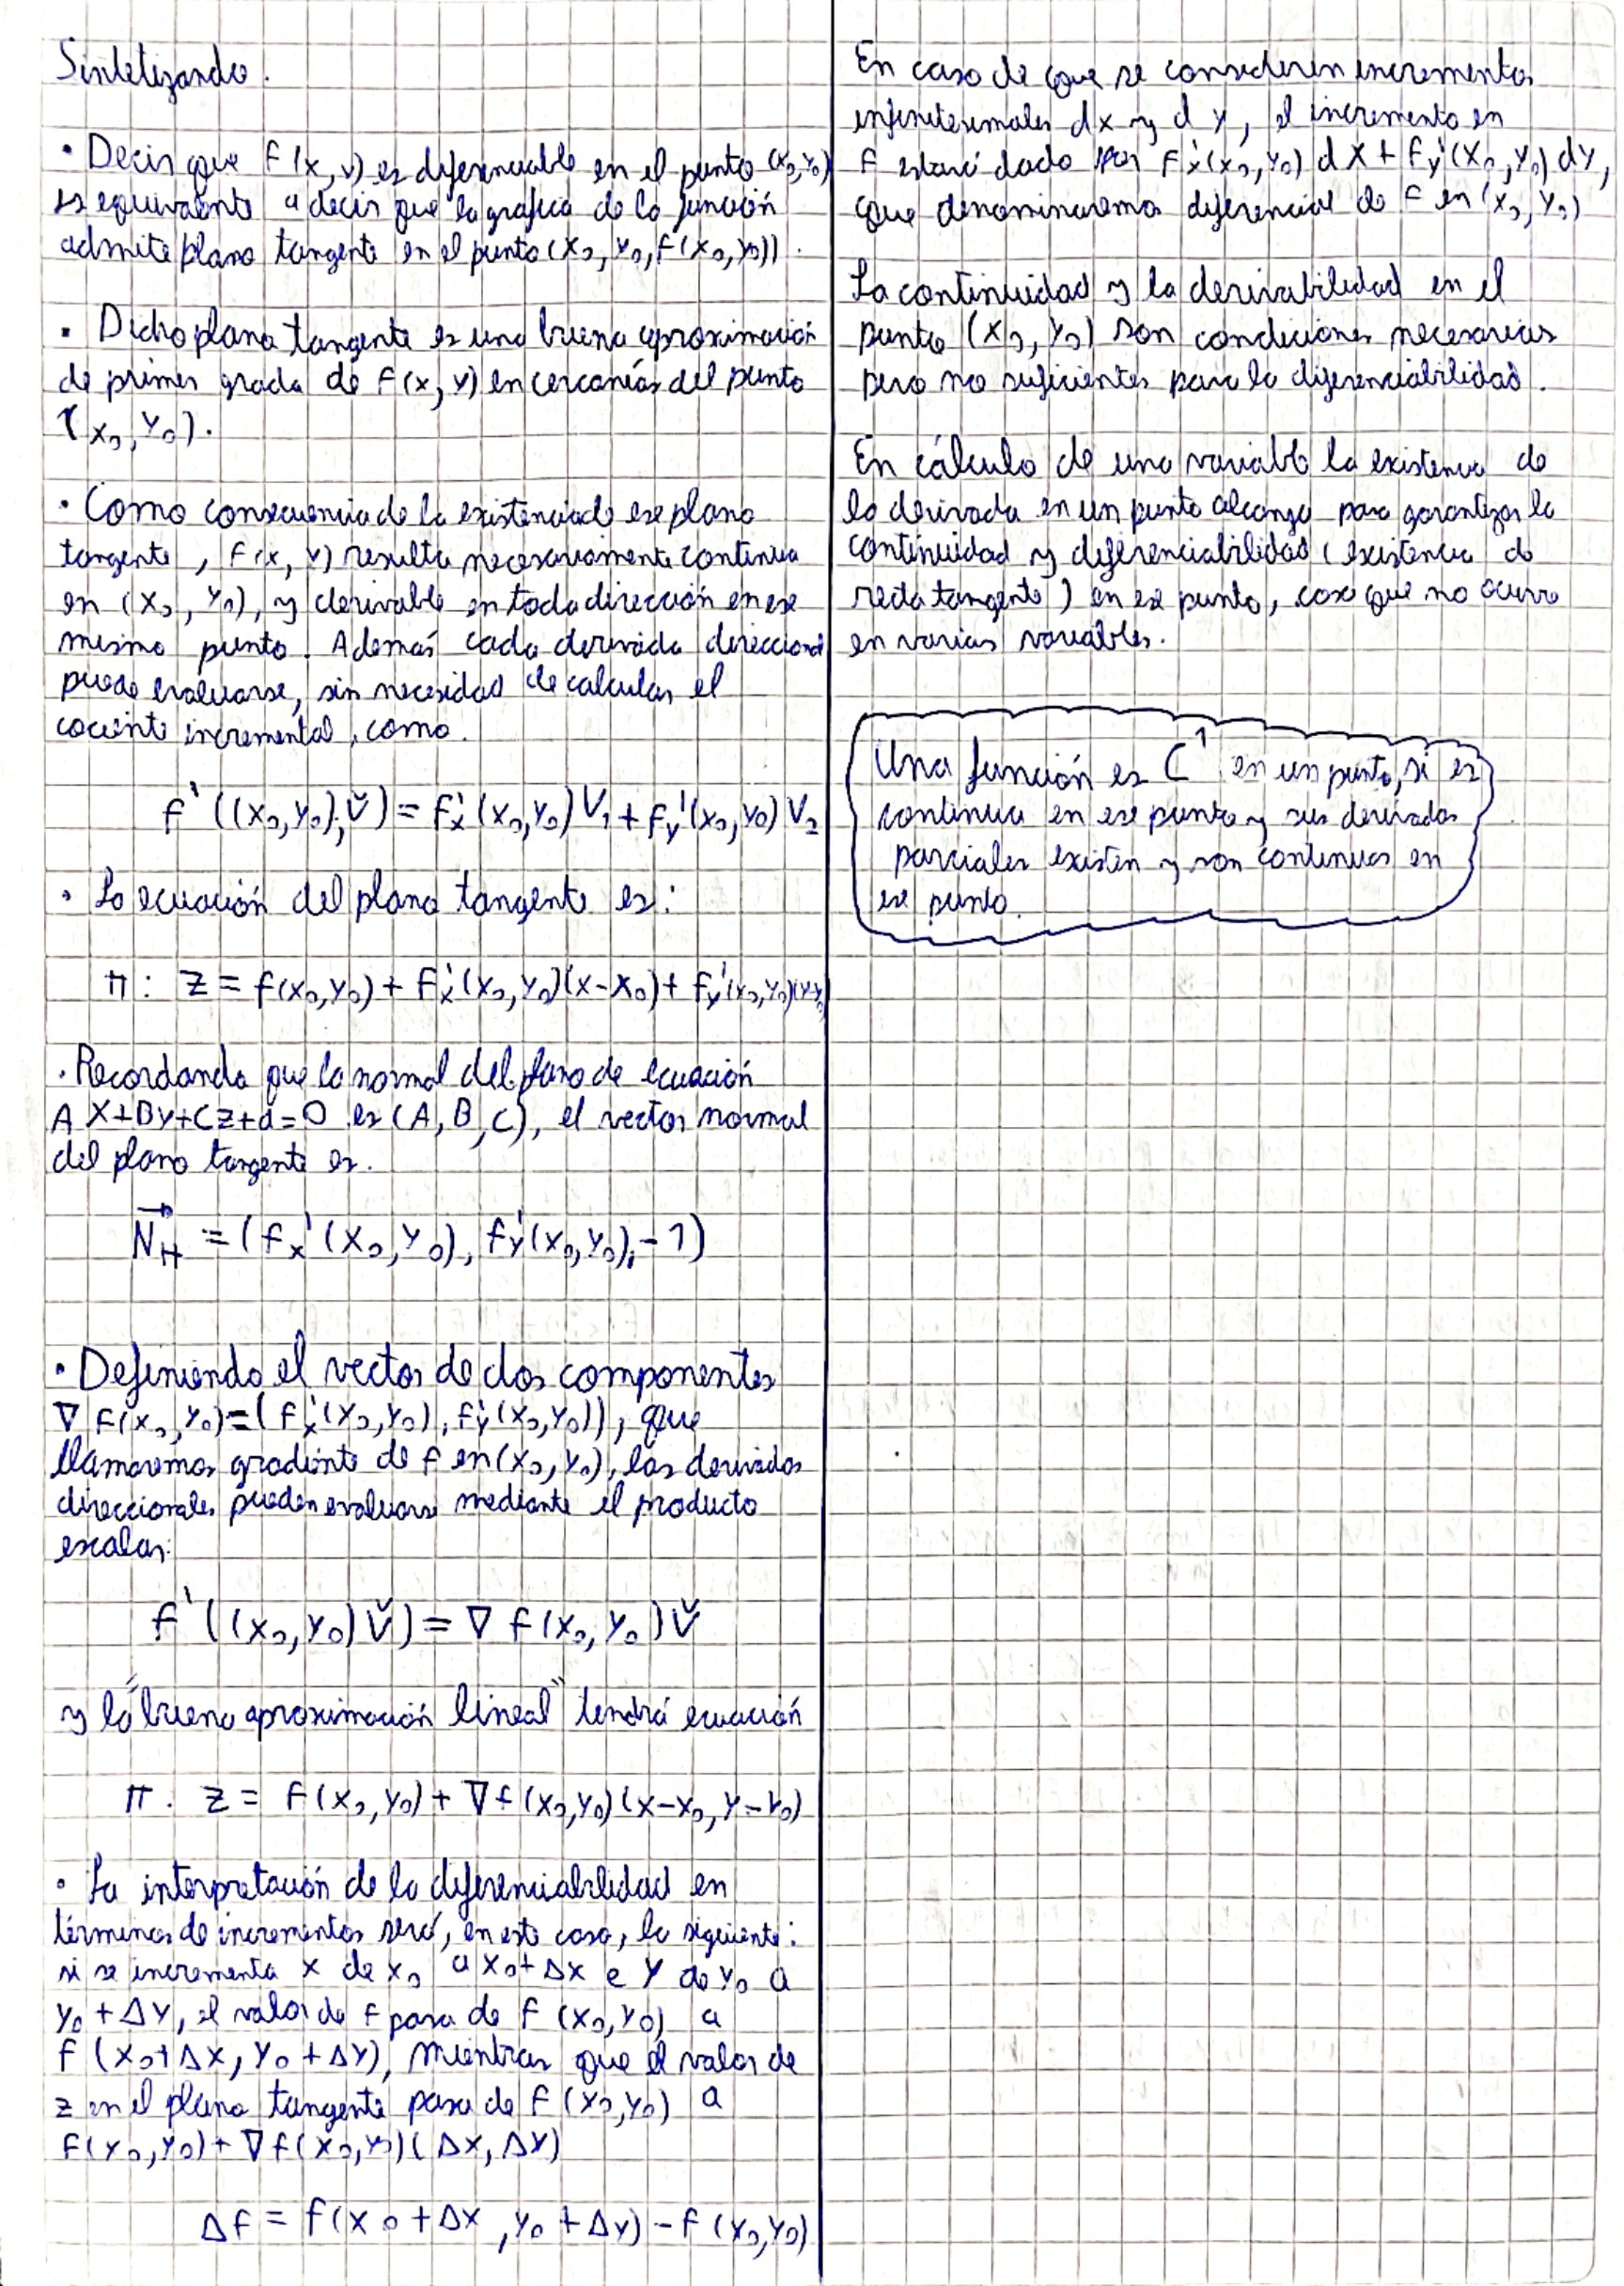 Sintetizando.
• Decir que F(x, y) es diferenciable en el punto (x₀, y₀)
es equivalente a decir que la gráfica de la función
admite plano tangente en el punto (x₀, y₀, F(x₀, y₀)).
• Dicho plano tangente es una buena aproximación
de primer grado de F(x, y) en cercanías del punto
(x₀, y₀).
• Como consecuencia de la existencia de ese plano
tangente, F(x, y) resulta necesariamente continua
en (x₀, y₀), y derivable en toda dirección en ese
mismo punto. Además cada derivada direccional
puede evaluarse, sin necesidad de calcular el
cociente incremental, como.
f'((x₀, y₀), v̌) = fx'(x₀, y₀) V₁ + fy'(x₀, y₀) V₂
• La ecuación del plano tangente es:
π: z = f(x₀, y₀) + fx'(x₀, y₀)(x-x₀) + fy'(x₀, y₀)(y-y₀)
• Recordando que la normal del plano de ecuación
Ax+By+Cz+d=0 es (A, B, C), el vector normal
del plano tangente es.
N⃗π = (fx'(x₀, y₀), fy'(x₀, y₀), -1)
• Definiendo el vector de dos componentes
∇F(x₀, y₀) = (fx'(x₀, y₀), fy'(x₀, y₀)), que
llamaremos gradiente de f en (x₀, y₀), las derivadas
direccionales pueden evaluarse mediante el producto
escalar:
f'((x₀, y₀) v̌) = ∇ f(x₀, y₀) v̌
y la "buena aproximación lineal" tendrá ecuación
π. z = f(x₀, y₀) + ∇f(x₀, y₀)(x-x₀, y-y₀)
• La interpretación de la diferenciabilidad en
términos de incrementos será, en este caso, la siguiente:
si se incrementa x de x₀ a x₀+Δx e y de y₀ a
y₀+Δy, el valor de f pasa de f(x₀, y₀) a
f(x₀+Δx, y₀+Δy), mientras que el valor de
z en el plano tangente pasa de f(x₀, y₀) a
f(x₀, y₀) + ∇f(x₀, y₀)(Δx, Δy)
Δf = f(x₀+Δx, y₀+Δy) - f(x₀, y₀)
En caso de que se consideren incrementos
infinitesimales dx y dy, el incremento en
f estará dado por fx'(x₀, y₀) dx + fy'(x₀, y₀) dy,
que denominaremos diferencial de f en (x₀, y₀)
La continuidad y la derivabilidad en el
punto (x₀, y₀) son condiciones necesarias
pero no suficientes para la diferenciabilidad.
En cálculo de una variable la existencia de
la derivada en un punto alcanza para garantizar la
continuidad y diferenciabilidad (existencia de
recta tangente) en ese punto, cosa que no ocurre
en varias variables.
Una función es C¹ en un punto, si es
continua en ese punto y sus derivadas
parciales existen y son continuas en
ese punto.